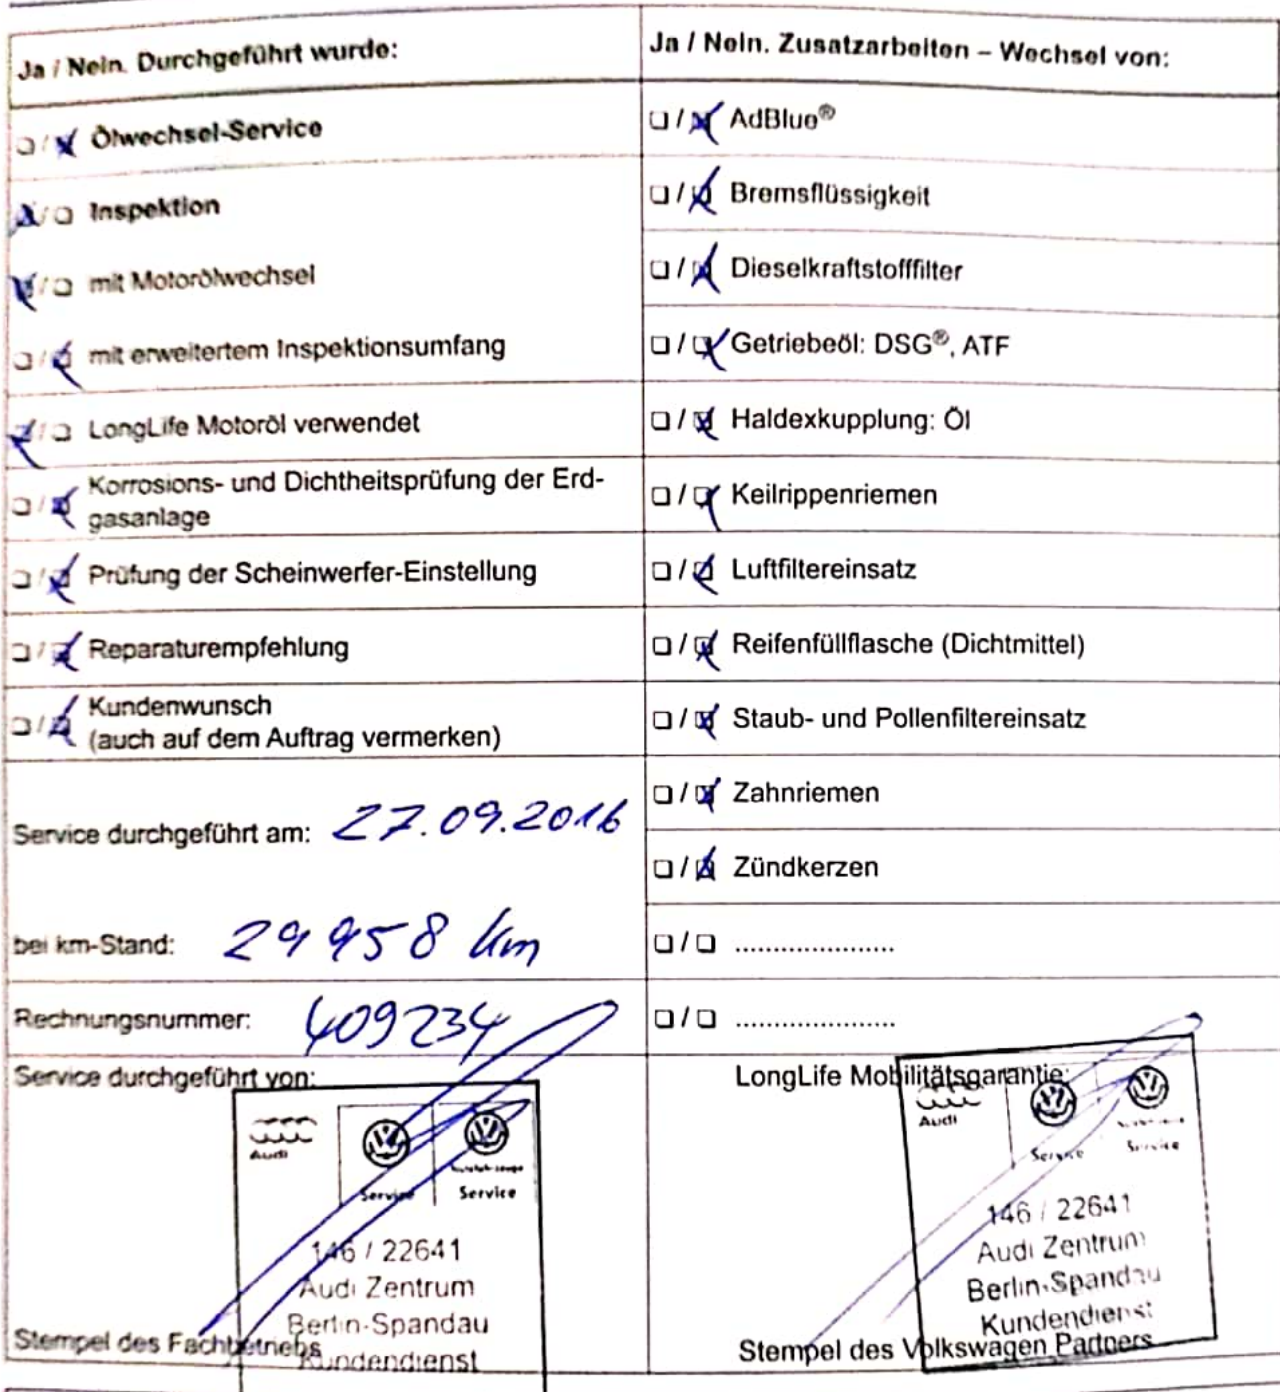 Ja / Nein. Durchgeführt wurde:
☐ / ☒ Ölwechsel-Service
☒ / ☐ Inspektion
☒ / ☐ mit Motorölwechsel
☐ / ☒ mit erweitertem Inspektionsumfang
☒ / ☐ LongLife Motoröl verwendet
☐ / ☒ Korrosions- und Dichtheitsprüfung der Erd-
gasanlage
☐ / ☒ Prüfung der Scheinwerfer-Einstellung
☐ / ☒ Reparaturempfehlung
☐ / ☒ Kundenwunsch
(auch auf dem Auftrag vermerken)
Service durchgeführt am: 27.09.2016
bei km-Stand: 29 958 km
Rechnungsnummer: 409234
Service durchgeführt von:
Audi
Service Service
146 / 22641
Audi Zentrum
Berlin-Spandau
Kundendienst
Stempel des Fachbetriebs
Ja / Nein. Zusatzarbeiten – Wechsel von:
☐ / ☒ AdBlue®
☐ / ☒ Bremsflüssigkeit
☐ / ☒ Dieselkraftstofffilter
☐ / ☒ Getriebeöl: DSG®, ATF
☐ / ☒ Haldexkupplung: Öl
☐ / ☒ Keilrippenriemen
☐ / ☒ Luftfiltereinsatz
☐ / ☒ Reifenfüllflasche (Dichtmittel)
☐ / ☒ Staub- und Pollenfiltereinsatz
☐ / ☒ Zahnriemen
☐ / ☒ Zündkerzen
☐ / ☐ .....................
☐ / ☐ .....................
LongLife Mobilitätsgarantie:
Audi
Service Service
146 / 22641
Audi Zentrum
Berlin-Spandau
Kundendienst
Stempel des Volkswagen Partners